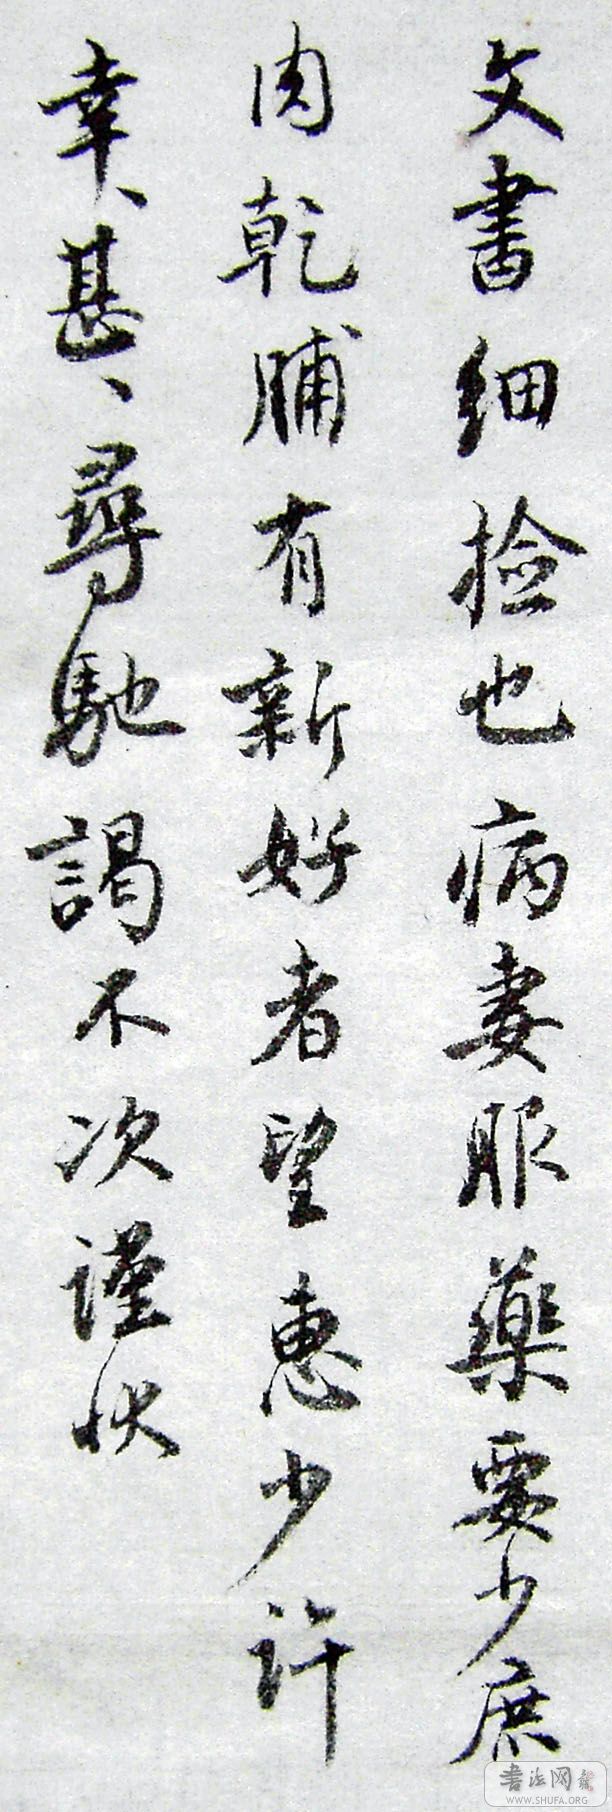 文書細撿也病妻服藥要少鹿
肉乾脯有新好者望惠少許
幸、甚、尋馳謁不次謹状
書法网
WWW.SHUFA.ORG